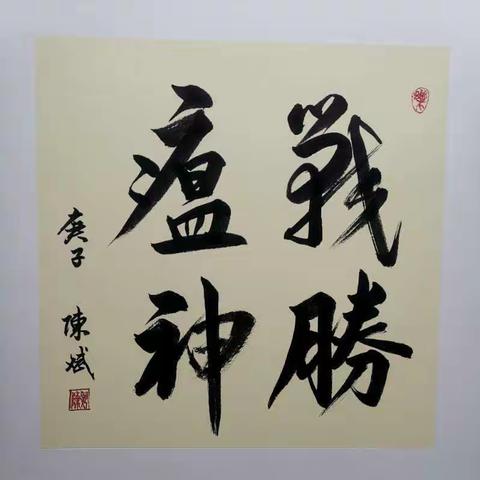 戰勝
瘟神
庚子 陳斌